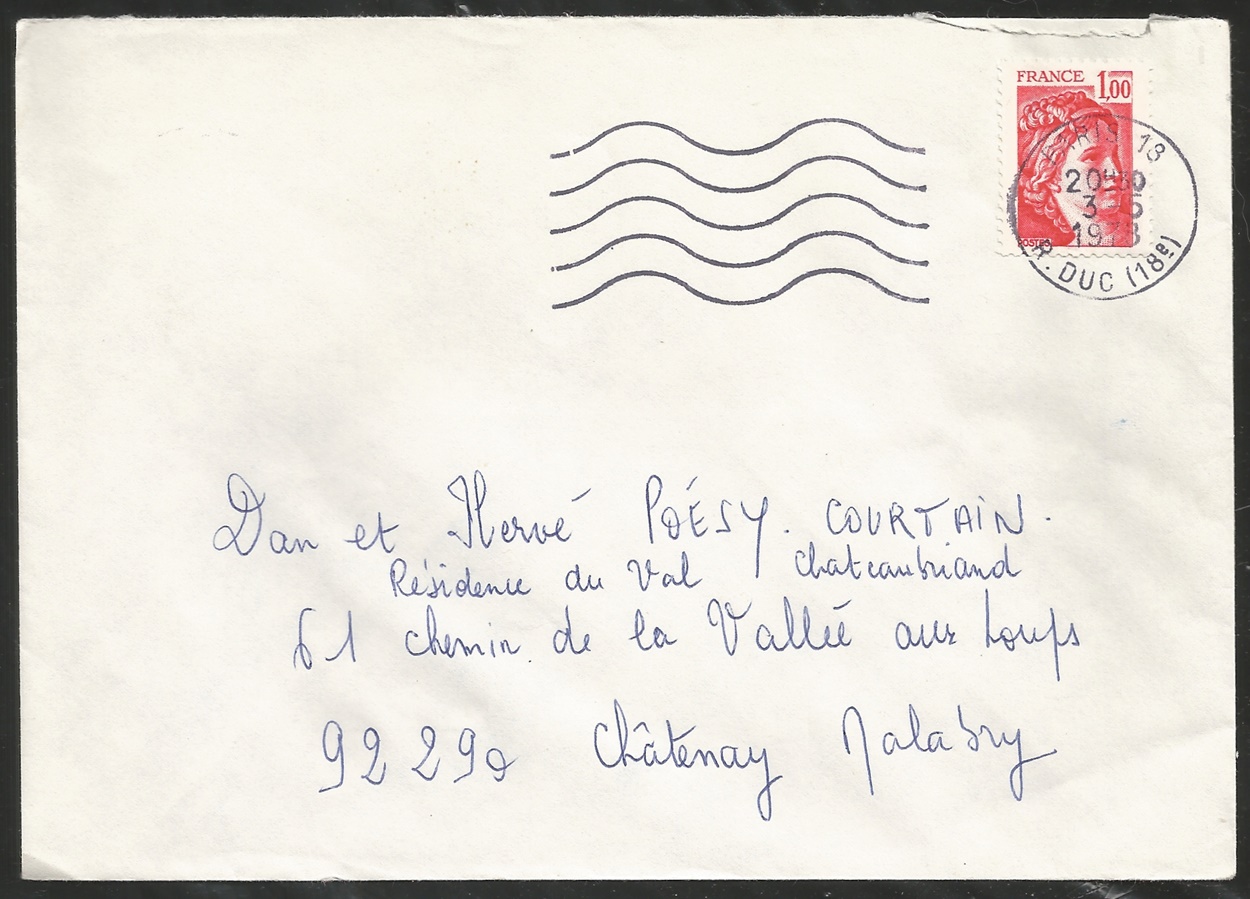 FRANCE 1,00
PARIS 18
20H30
3-5
1978
R. DUC (18e)
POSTES
Dan et Hervé POÉSY. COURTAIN.
Résidence du Val Chateaubriand
61 chemin de la Vallée aux Loups
92290 Châtenay Malabry